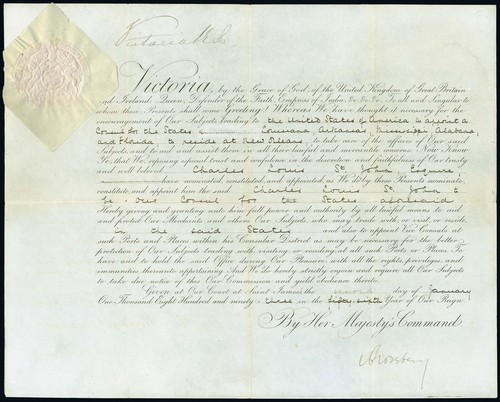 Victoria R I
Victoria, by the Grace of God, of the United Kingdom of Great Britain
and Ireland, Queen, Defender of the Faith, Empress of India, &c. &c. &c. To all and Singular to
whom these Presents shall come, Greeting! Whereas We have thought it necessary for the
encouragement of Our Subjects trading to the United States of America to appoint a
Consul for the States of Louisiana, Arkansas, Mississippi, Alabama,
and Florida, to reside at New Orleans, to take care of the affairs of Our said
Subjects, and to aid and assist them in all their lawful and mercantile concerns: Now Know
Ye, that We, reposing especial trust and confidence in the discretion and faithfulness of Our trusty
and well beloved Charles Louis St. John Esquire
have nominated, constituted, and appointed, as We do by these Presents nominate,
constitute, and appoint him the said Charles Louis St. John to
be Our Consul for the States aforesaid
Hereby giving and granting unto him full power and authority by all lawful means to aid
and protect Our Merchants and others Our Subjects, who may trade with, or visit, or reside,
in the said States and also to appoint Vice Consuls at
such Ports and Places within his Consular District as may be necessary for the better
protection of Our Subjects trading with, visiting, or residing at all such Ports or Places. To
have and to hold the said Office during Our Pleasure, with all the rights, privileges, and
immunities thereunto appertaining. And We do hereby strictly enjoin and require all Our Subjects
to take due notice of this Our Commission, and yield obedience thereto.
Given at Our Court at Saint James's, the day of January
One Thousand Eight Hundred and ninety-three in the fifty-sixth Year of Our Reign.
By Her Majesty's Command.
Rosebery